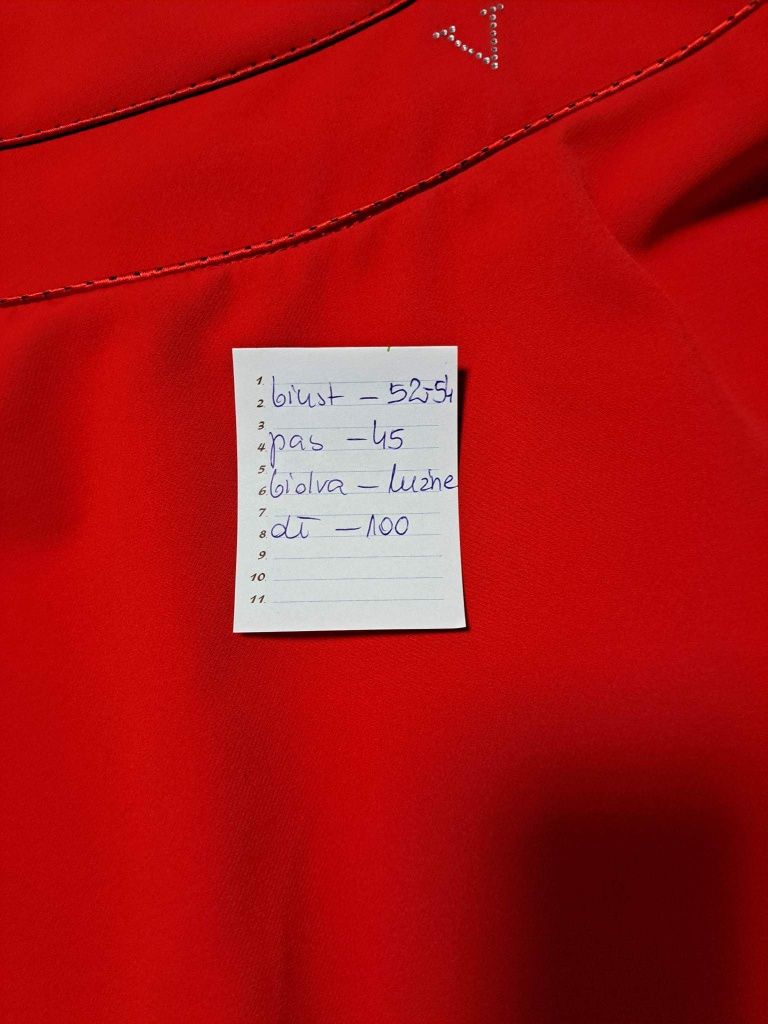 1.
2. biust – 52-54
3
4. pas – 45
5.
6. biodra – luźne
7.
8. dł – 100
9
10.
11.